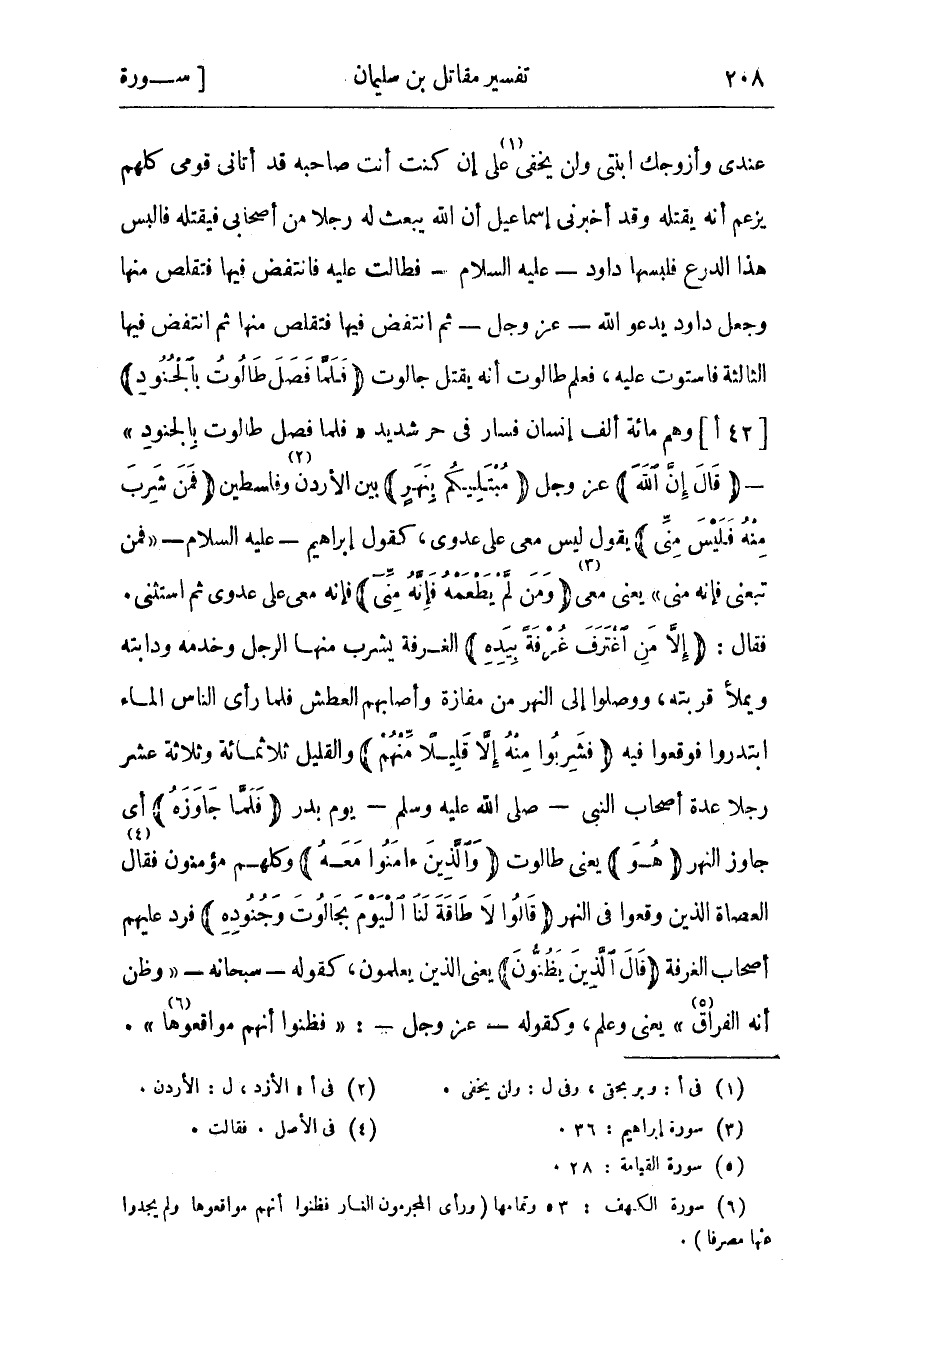 ٢٠٨ تفسير مقاتل بن سليمان [ ســورة
عندى وأزوجك ابنتى ولن يخفى(١) على إن كنت أنت صاحبه قد أتانى قومى كلهم
يزعم أنه يقتله وقد أخبرنى إسماعيل أن الله يبعث له رجلا من أصحابى فيقتله فالبس
هذا الدرع فلبسها داود — عليه السلام — فطالت عليه فانتفض فيها فتقلص منها
وجعل داود يدعو الله — عز وجل — ثم انتفض فيها فتقلص منها ثم انتفض فيها
الثالثة فاستوت عليه، فعلم طالوت أنه يقتل جالوت ﴿ فَلَمَّا فَصَلَ طَالُوتُ بِٱلْجُنُودِ ﴾
[ ٤٢ أ ] وهم مائة ألف إنسان فسار فى حر شديد « فلما فصل طالوت بِالجنودِ »
— ﴿ قَالَ إِنَّ ٱللَّهَ ﴾ عز وجل ﴿ مُبْتَلِيكُم بِنَهَرٍ ﴾ بين الأردن(٢) وفلسطين ﴿ فَمَن شَرِبَ
مِنْهُ فَلَيْسَ مِنِّى ﴾ يقول ليس معى على عدوى، كقول إبراهيم — عليه السلام — «فمن
تبعنى فإنه منى» يعنى معى(٣) ﴿ وَمَن لَّمْ يَطْعَمْهُ فَإِنَّهُ مِنِّىٓ ﴾ فإنه معى على عدوى ثم استثنى .
فقال : ﴿ إِلَّا مَنِ ٱغْتَرَفَ غُرْفَةً بِيَدِهِ ﴾ الغـرفة يشرب منهـا الرجل وخدمه ودابته
ويملأ قربته، ووصلوا إلى النهر من مفازة وأصابهم العطش فلما رأى الناس المـاء
ابتدروا فوقعوا فيه ﴿ فَشَرِبُوا مِنْهُ إِلَّا قَلِيـلًا مِّنْهُمْ ﴾ والقليل ثلاثمـائة وثلاثة عشر
رجلا عدة أصحاب النبى — صلى الله عليه وسلم — يوم بدر ﴿ فَلَمَّا جَاوَزَهُ ﴾ أى
جاوز النهر ﴿ هُـوَ ﴾ يعنى طالوت ﴿ وَٱلَّذِينَ ءامَنُوا مَعَـهُ ﴾ وكلهـم مؤمنون فقال(٤)
العصاة الذين وقعوا فى النهر ﴿ قَالُوا لَا طَاقَةَ لَنَا ٱلْيَوْمَ بِجَالُوتَ وَجُنُودِهِ ﴾ فرد عليهم
أصحاب الغرفة ﴿قَالَ ٱلَّذِينَ يَظُنُّونَ﴾ يعنى الذين يعلمون، كقوله — سبحانه — « وظن
أنه الفراق(٥) » يعنى وعلم، وكقوله — عز وجل — : « فظنوا أنهم مواقعوها(٦) » .
(١) فى أ : ويربحنى ، وفى ل : ولن يخفى . (٢) فى أ : الأزد ، ل : الأردن .
(٣) سورة إبراهيم : ٣٦ . (٤) فى الأصل . فقالت .
(٥) سورة القيامة : ٢٨ .
(٦) سورة الكهف : ٥٣ وتمامها ( ورأى المجرمون النـار فظنوا أنهم مواقعوها ولم يجدوا
عنها مصرفا ) .